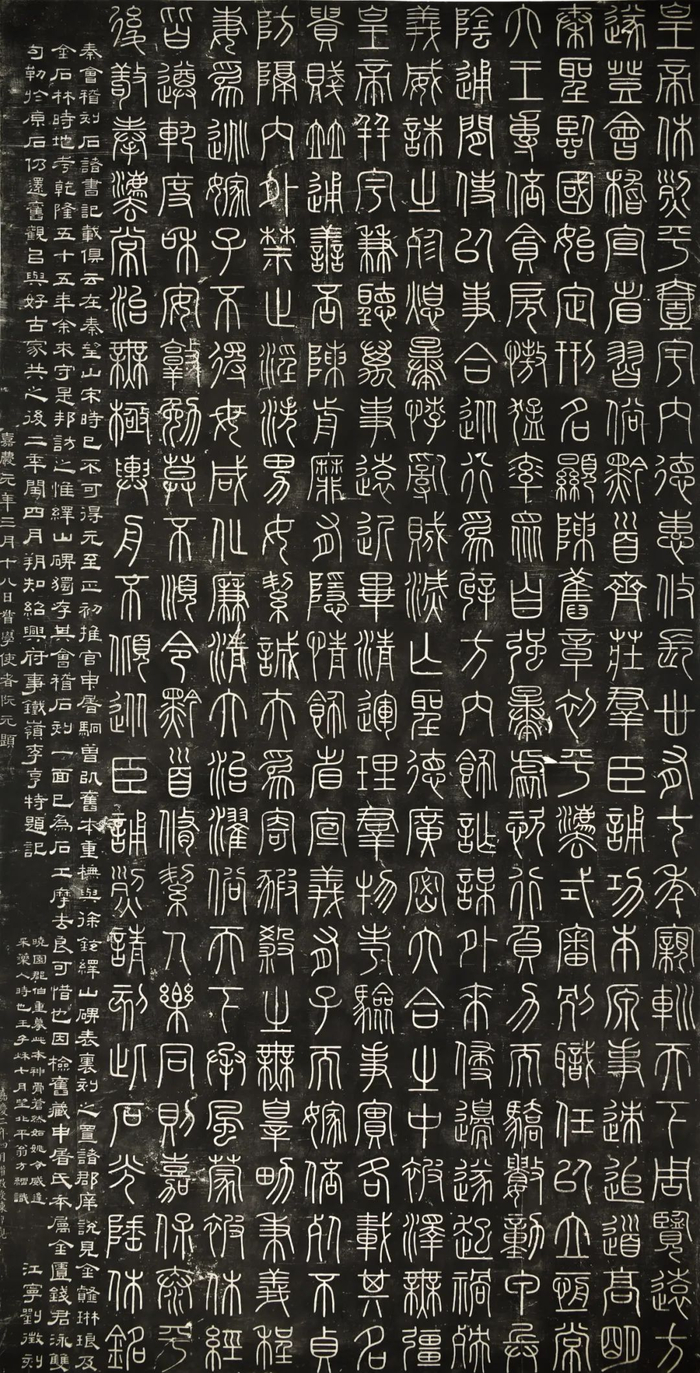 皇帝休烈平壹宇内德惠攸長丗有七年親軓天下周覽遠方
遂登會稽宣省習俗黔首齊莊群臣誦功本原事迹追道高明
秦聖臨國始定刑名顯陳舊章初平法式審別職任以立恒常
六王專倍貪戾慠猛率眾自强暴虐恣行負力而驕數動甲兵
陰通間使以事合從行為辟方内飾詐謀外來侵邊遂起禍殃
義威誅之殄熄暴悖亂賊滅亡聖德廣密六合之中被澤無疆
皇帝并宇兼聽萬事遠近畢清運理群物考驗事實各載其名
貴賤並通善否陳前靡有隱情飾省宣義有子而嫁倍死不貞
防隔内外禁止淫泆男女絜誠夫為寄豭殺之無辠男秉義程
妻為逃嫁子不得母咸化廉清大治濯俗天下承風蒙被休經
皆遵軌度和安敦勉莫不順令黔首脩絜人樂同則嘉保泰平
後敬奉法常治無極輿舟不傾從臣誦烈請刻此石光陲休銘
秦會稽刻石諸書記載俱云在秦望山宋時已不可得元至正初推官申屠駉曾㠯舊本重橅與徐鉉繹山碑表裏刻之置諸郡庠說見金薤琳琅及
金石林時地考乾隆五十五年余來守是邦訪之惟繹山碑獨存其會稽石刻一面已為石工摩去良可惜也因檢舊藏申屠氏本屬金匱錢君泳雙
勾勒於原石仍還舊觀㠯與好古家共之後二年閏四月朔知紹興府事鐵嶺李亨特題記
曉園郡伯重摹此本神骨蒼然如姚令威逢
采漢人時也壬子秋十月望北平翁方綱識
江寧劉徵刻
嘉慶元年三月十八日督學使者阮元題